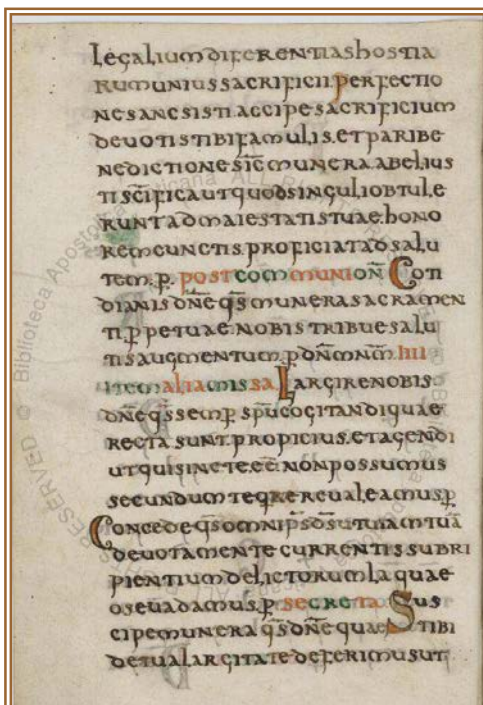 legaliumdiferentiashostia
rumuniussacrificii perfectio
nesancsisti. accipesacrificium
devotistibifamulis. etparibe
nedictionesic̄munera. abelius
tisc̄ificautquodsinguliobtule
runtadmaiestatistuae. hono
remcunctis. proficiatadsalu
tem. p̱. postcommunioñ Coti
dianisdn̄eqs̄munerasacramen
ti. p̱petuae. nobistribuesalu
tisaugmentum. p̱dn̄mnm̄. IIII
itemaliamissa. Largirenobis
dn̄eqs̄semp̱. sp̄ucogitandiquae
rectasunt. propicius. etagendi
utquisinete. eē. nonpossumus
secundumteq̄re. revaleamus p̱
Concedeqs̄omnip̄sdsutuiamtuā
devotamentecurrentissubri
pientiumdelictorumlaquae
osevadamus. p̱. secreta Sus
cipemuneraqs̄dn̄equaestibi
detualargitatedeferimusut
Biblioteca Apostolica Vaticana ALL RIGHTS RESERVED ©